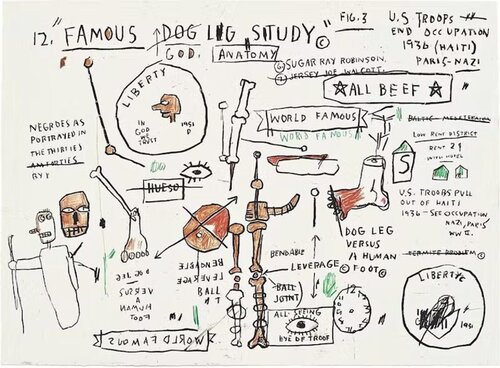 12. "FAMOUS ↑DOG LEG STUDY"©
GOD. ANATOMY
FIG. 3
U.S TROOPS
END OCCUPATION
1936 (HAITI)
PARIS-NAZI
① SUGAR RAY ROBINSON.
② JERSEY JOE WALCOTT.
☆ALL BEEF☆
LIBERTY
IN
GOD
WE
TRUST
1951
D
NEGROES AS
PORTRAYED IN
THE THIRTIES
WORLD FAMOUS
WORLD FAMOUS
LOW RENT DISTRICT
RENT 2$
WITH HOTEL
S
HUESO
U.S. TROOPS PULL
OUT OF HAITI
1936 - SEE OCCUPATION
NAZI, PARIS
WW II.
DOG LEG
VERSUS
A HUMAN
©FOOT©
BENDABLE
LEVERAGE
BALL
JOINT
BENDABLE
LEVERAGE
BALL
DOG LEG
VERSUS
A HUMAN
FOOT
TERMITE PROBLEM
LIBERTY
1951
12
ALL-SEEING
EYE OF TROOF
WORLD FAMOUS